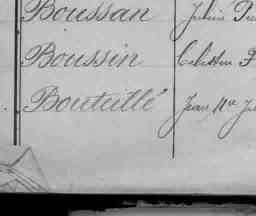 Boussan Julien
Boussin Célestin
Bouteillé Jean M^ie